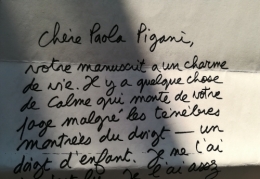 Chère Paola Pigani,
votre manuscrit a un charme
de vie. Il y a quelque chose
de calme qui monte de votre
page malgré les ténèbres
montrées du doigt — un
doigt d'enfant. Je ne l'ai
lu. Je l'ai assez